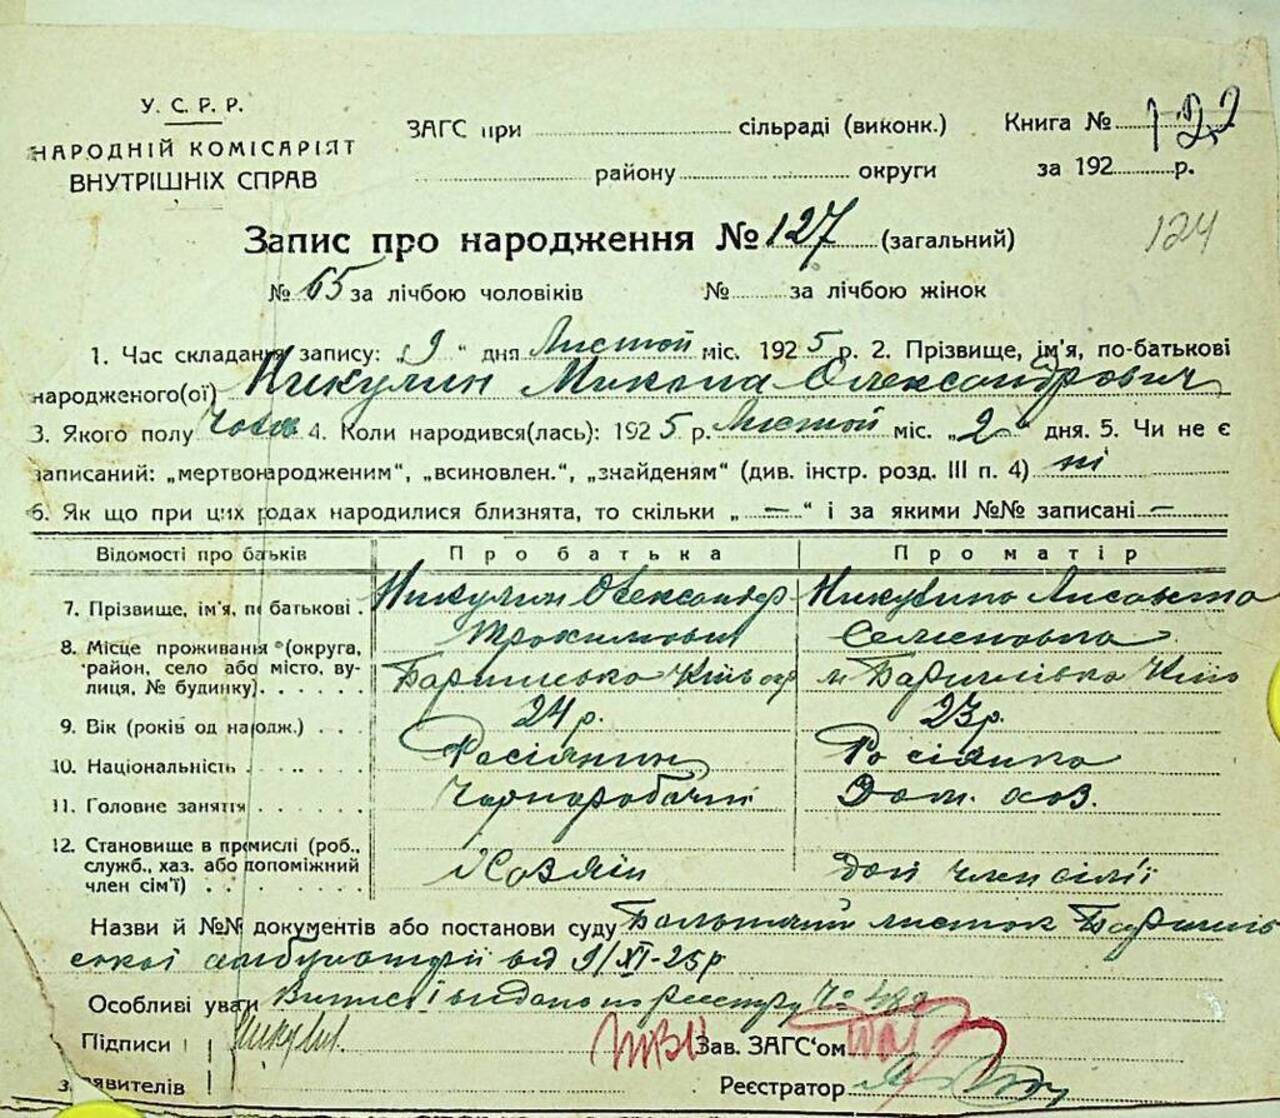 У. С. Р. Р.
НАРОДНІЙ КОМІСАРІЯТ
ВНУТРІШНІХ СПРАВ
ЗАГС при сільраді (виконк.)
району округи
Книга №
за 192 р.
122
124
Запис про народження № 127 (загальний)
№ 65 за лічбою чоловіків № за лічбою жінок
1. Час складання запису: „9“ дня Листоп міс. 1925 р. 2. Прізвище, ім'я, по-батькові
народженого(ої) Никулин Микола Олександрович
3. Якого полу Чолов 4. Коли народився(лась): 1925 р. Листоп міс. „2“ дня. 5. Чи не є
записаний: „мертвонародженим“, „всиновлен.“, „знайденям“ (див. інстр. розд. III п. 4) ні
6. Як що при цих родах народилися близнята, то скільки „ — “ і за якими №№ записані —
Відомості про батьків Про батька Про матір
7. Прізвище, ім'я, по батькові . Никулин Олександр Трохимович Никулина Лисавета Семеновна
8. Місце проживання (округа,
район, село або місто, ву-
лиця, № будинку). . . . . . Баришівка Київ окр м Баришівка Київ
9. Вік (років од народж.) . . . 24 р. 23 р.
10. Національність . . . . . . Росіянин Росіянка
11. Головне заняття . . . . . . Чорноробочий Дом. хоз.
12. Становище в промислі (роб.,
служб., хаз. або допоміжний
член сім'ї) . . . . . . . Хозяїн Доп член сім'ї
Назви й №№ документів або постанови суду Больничний листок Баришів
ської амбулаторії від 9/XI-25р
Особливі уваги Випис і видано по реєстру № 489
Підписи Никулин
заявителів
Зав. ЗАГС'ом
Реєстратор